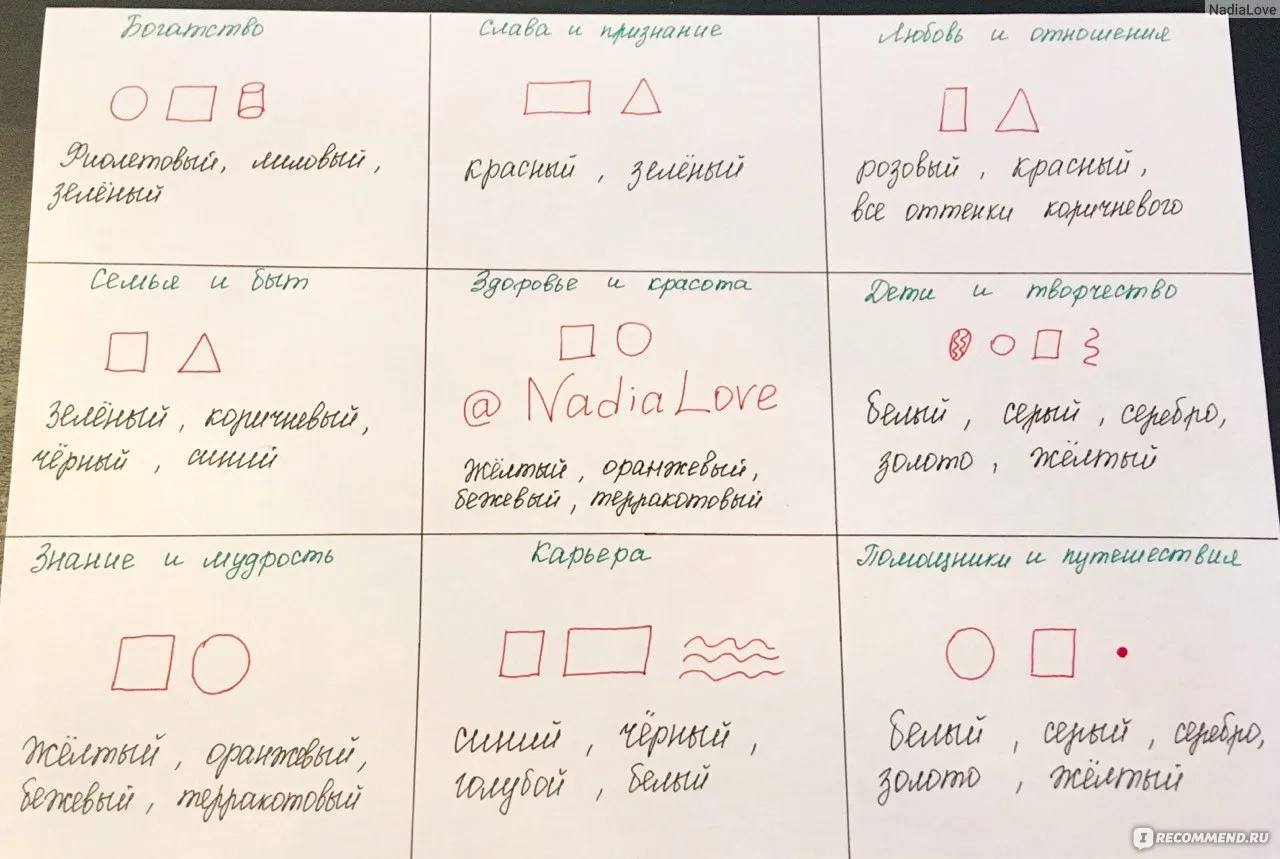 NadiaLove
Богатство
Фиолетовый, лиловый,
зелёный
Слава и признание
красный, зелёный
Любовь и отношения
розовый, красный,
все оттенки коричневого
Семья и быт
зелёный, коричневый,
чёрный, синий
Здоровье и красота
@ NadiaLove
жёлтый, оранжевый,
бежевый, терракотовый
Дети и творчество
белый, серый, серебро,
золото, жёлтый
Знание и мудрость
жёлтый, оранжевый,
бежевый, терракотовый
Карьера
синий, чёрный,
голубой, белый
Помощники и путешествия
белый, серый, серебро,
золото, жёлтый
IRECOMMEND.RU